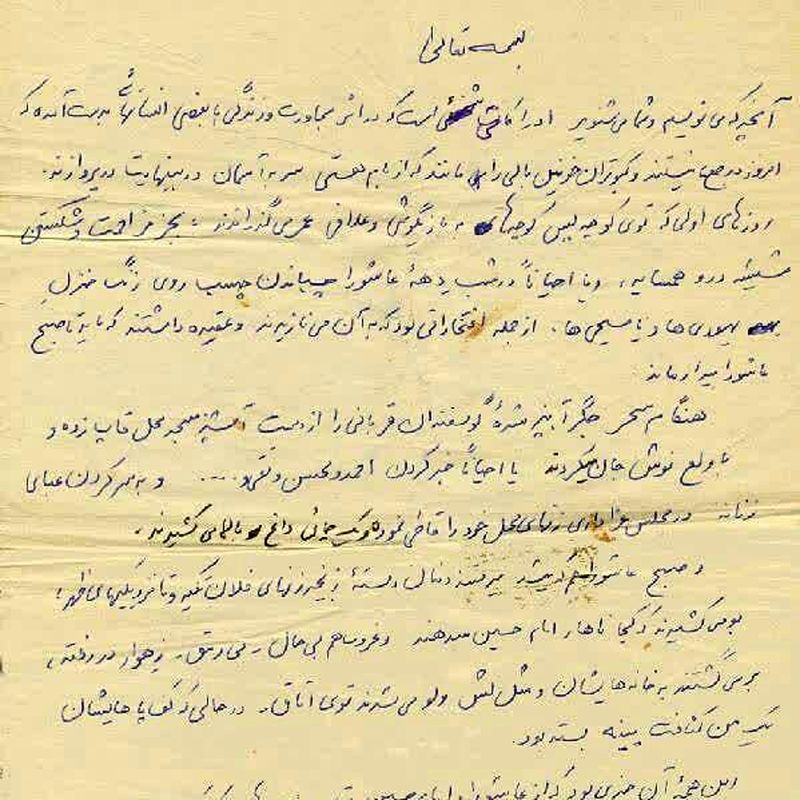 بسمه تعالی
آنچه که می نویسم و شما می شنوید ادراکاتی است که در اثر مجاورت و زندگی با بعضی انسانهائی بدست آمده که
امروز در جمع ما نیستند و کبوتران خونین بالی را مانند که از بام هستی سر به آسمان در بینهایت در پروازند.
روزهای اولی که توی کوچه پس کوچه های به بازیگوشی و علافی عمر می گذراندند، بجز مزاحمت و شکستن
شیشه در و همسایه، و یا احیاناً در شب دهۀ عاشورا چسباندن چسب روی زنگ منزل
یهودی ها و یا مسیحی ها، از جمله افتخاراتی بود که به آن می نازیدند و عقیده داشتند که باید تا صبح
عاشورا بیدار ماند.
هنگام سحر جگر آب پز شدۀ گوسفندان قربانی را از دست آشپز مسجد محل قاپ زده و
با ولع نوش جان میکردند یا احیاناً خبر کردن احمد و محسن و تقی و .... و به سر کردن عبای
زنانه در مجلس عزاداری زنهای محل خود را قاطی نموده و یک چائی داغ بالا می کشیدند.
و صبح عاشورا میرفتند دنبال دستۀ زنجیرزنهای فلان تکیه و تا نزدیکیهای ظهر؛
بو می کشیدند که کجا ناهار امام حسین میدهند و غروب هم بی حال، بی رمق، زهوار در رفته،
بر می گشتند به خانه هایشان و مثل لش ولو می شدند توی اتاق، در حالی که کف پاهایشان
یک من کثافت پینه بسته بود.
این همۀ آن چیزی بود که از عاشورا و امام حسین